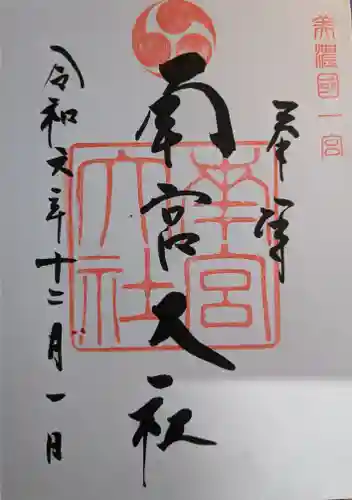 美濃國一宮
奉拝
南宮大社
南宮大社
令和元年十二月一日